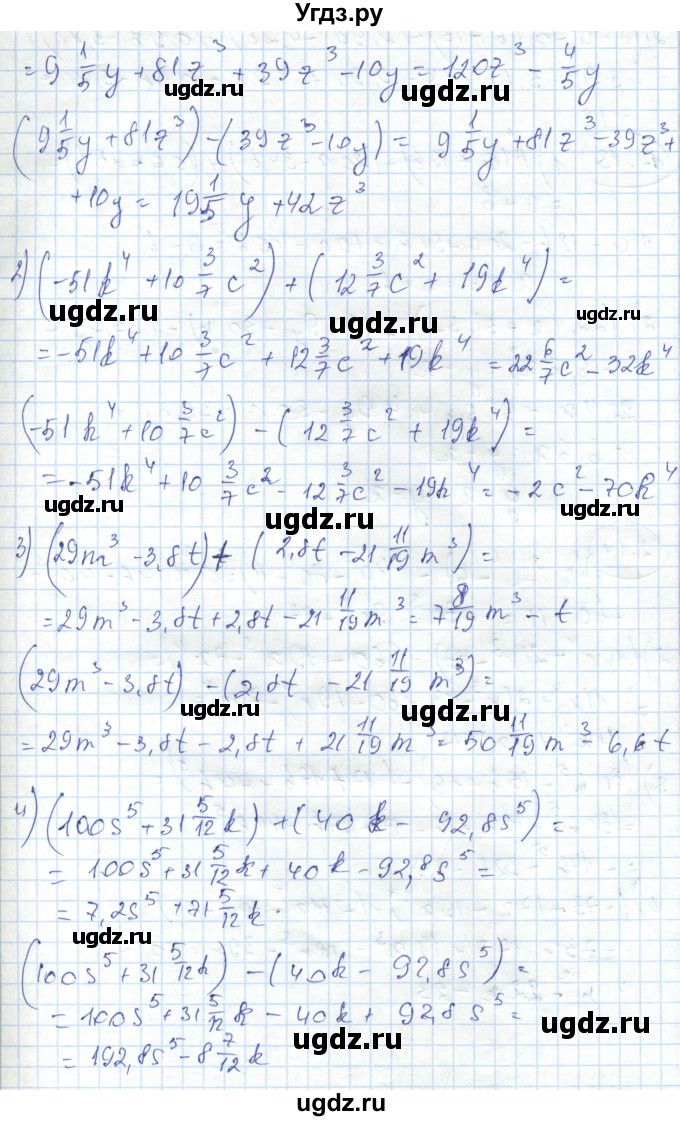 Угдз.ру
= 9 1/5 y + 81z³ + 39z³ - 10y = 120z³ - 4/5 y
(9 1/5 y + 81z³) - (39z³ - 10y) = 9 1/5 y + 81z³ - 39z³ +
+ 10y = 19 1/5 y + 42z³
2) (-51k⁴ + 10 3/7 c²) + (12 3/7 c² + 19k⁴) =
= -51k⁴ + 10 3/7 c² + 12 3/7 c² + 19k⁴ = 22 6/7 c² - 32k⁴
(-51k⁴ + 10 3/7 c²) - (12 3/7 c² + 19k⁴) =
= -51k⁴ + 10 3/7 c² - 12 3/7 c² - 19k⁴ = -2c² - 70k⁴
3) (29m³ - 3,8t) + (2,8t - 21 11/19 m³) =
= 29m³ - 3,8t + 2,8t - 21 11/19 m³ = 7 8/19 m³ - t
(29m³ - 3,8t) - (2,8t - 21 11/19 m³) =
= 29m³ - 3,8t - 2,8t + 21 11/19 m³ = 50 11/19 m³ - 6,6t
4) (100s⁵ + 31 5/12 k) + (40k - 92,8s⁵) =
= 100s⁵ + 31 5/12 k + 40k - 92,8s⁵ =
= 7,2s⁵ + 71 5/12 k
(100s⁵ + 31 5/12 k) - (40k - 92,8s⁵) =
= 100s⁵ + 31 5/12 k - 40k + 92,8s⁵ =
= 192,8s⁵ - 8 7/12 k
ugdz.ru